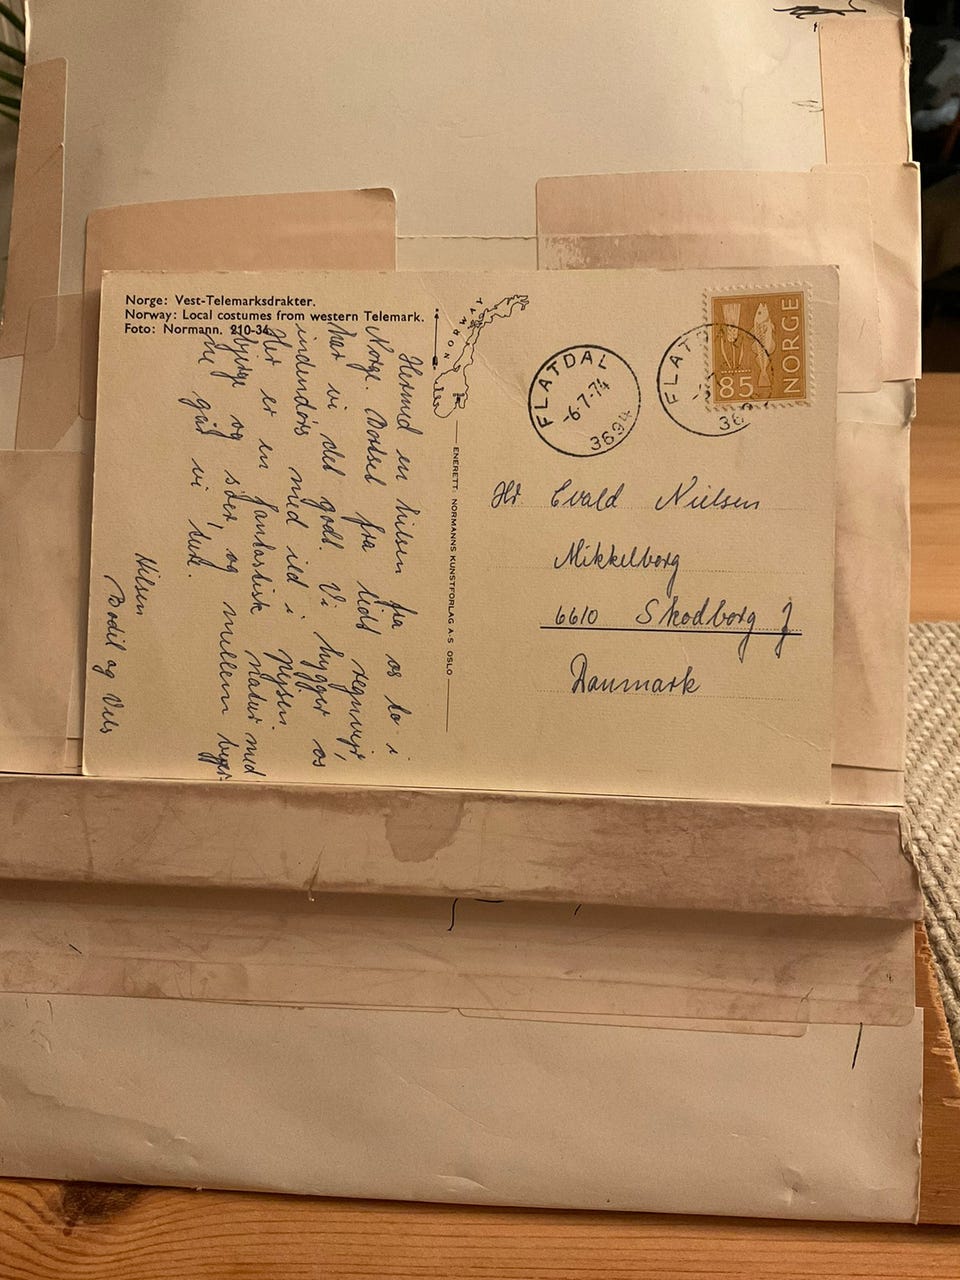 Norge: Vest-Telemarksdrakter.
Norway: Local costumes from western Telemark.
Foto: Normann. 210-34
NORWAY
Hermed en hilsen fra os to i
Norge. Bortset fra lidt regnvejr,
har vi det godt. Vi hygger os
indendørs med ild i pejsen.
Her er en fantastisk natur med
bjerge og søer, og mellem byger-
ne går vi ture.
Hilsen
Bodil og Nils
ENERETT: NORMANNS KUNSTFORLAG A-S OSLO
FLATDAL
-6-7-74
3694
FLATDA
36
85
NORGE
Hr. Evald Nielsen
Mikkelborg
6610 Skodborg J
Danmark